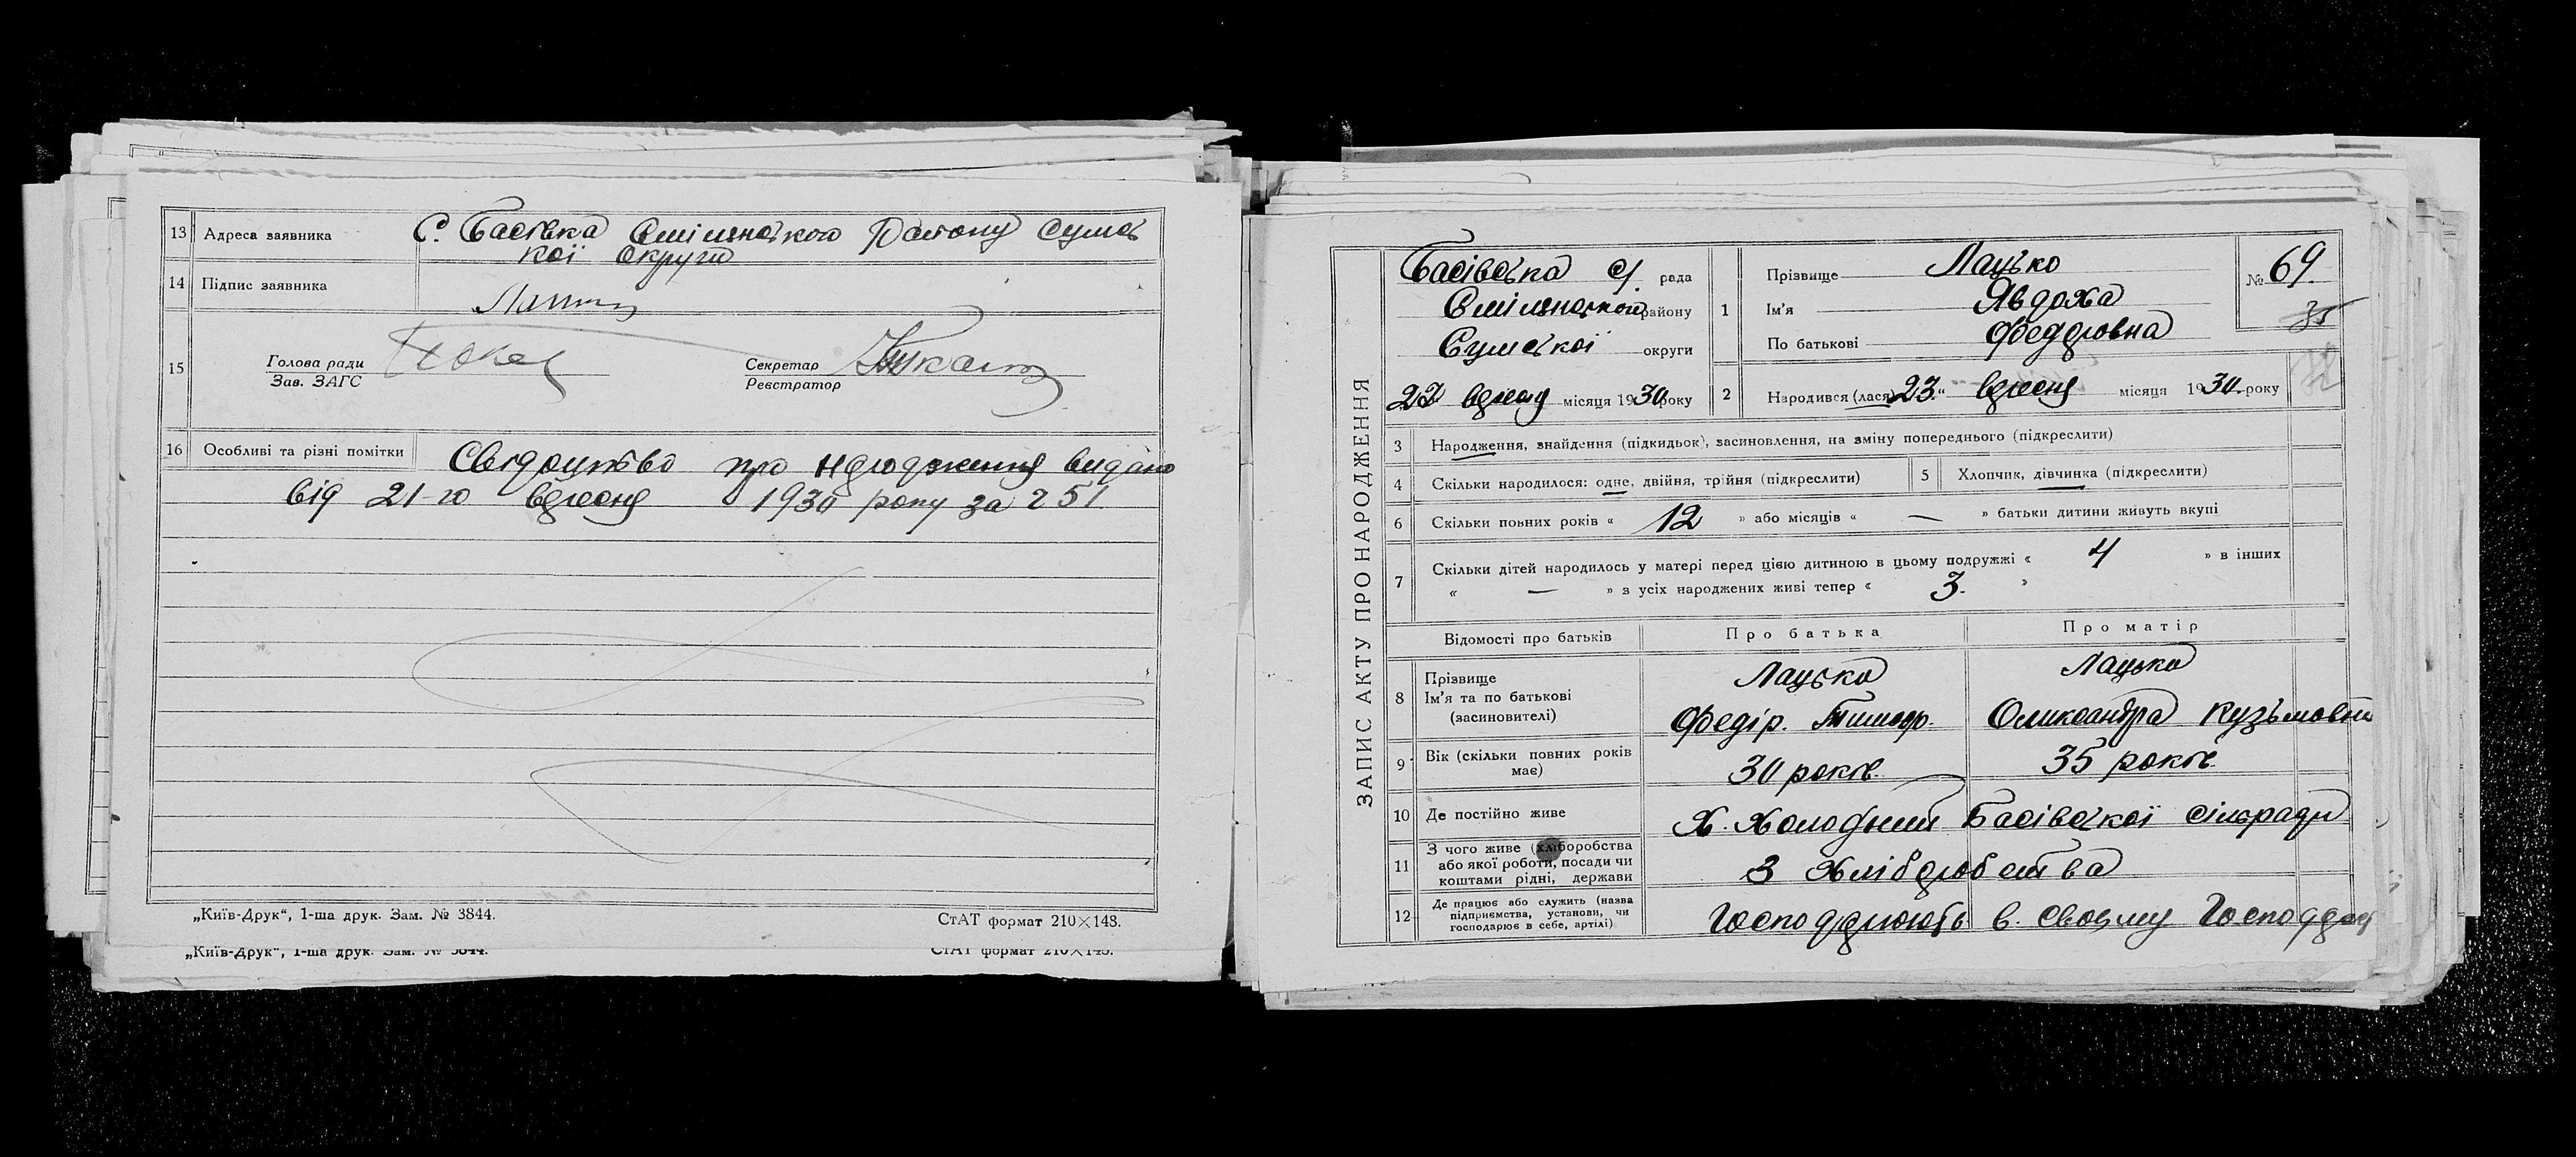 13 Адреса заявника С. Басівка Смілянського Району Сумсь
кої Округи
14 Підпис заявника
15 Голова ради
Зав. ЗАГС
Секретар
Реєстратор
16 Особливі та різні помітки Свідоцтво про народження видано
від 21-го вересня 1930 року за 251.
„Київ-Друк“, 1-ша друк. Зам. № 3844.
СтАТ формат 210×148.
„Київ-Друк“, 1-ша друк. Зам. № 3844.
СтАТ формат 210×148.
ЗАПИС АКТУ ПРО НАРОДЖЕННЯ
Басівська с/ рада
району
Сумської округи
вересня місяця 1930 року
1 Прізвище Лацько
Ім'я Явдоха
По батькові Федоровна
№ 69.
35
2 Народився (лася) 23 “ вересня місяця 1930 року
3 Народження, знайдення (підкидьок), засиновлення, на зміну попереднього (підкреслити)
4 Скільки народилося: одне, двійня, трійня (підкреслити)
5 Хлопчик, дівчинка (підкреслити)
6 Скільки повних років « 12 » або місяців « — » батьки дитини живуть вкупі
7 Скільки дітей народилось у матері перед цією дитиною в цьому подружжі « 4 » в інших
« — » з усіх народжених живі тепер « 3. »
Відомості про батьків
Про батька
Про матір
8 Прізвище
Ім'я та по батькові
(засиновителі)
Лацько
Федір. Тимоф.
Лацько
Олександра Кузьмовна
9 Вік (скільки повних років
має)
30 років.
35 років.
10 Де постійно живе Х. Холодний Басівської сільради
11 З чого живе (хліборобства
або якої роботи, посади чи
коштами рідні, держави
З Хліборобства
12 Де працює або служить (назва
підприємства, установи, чи
господарює в себе, артілі)
Господарюють в своєму